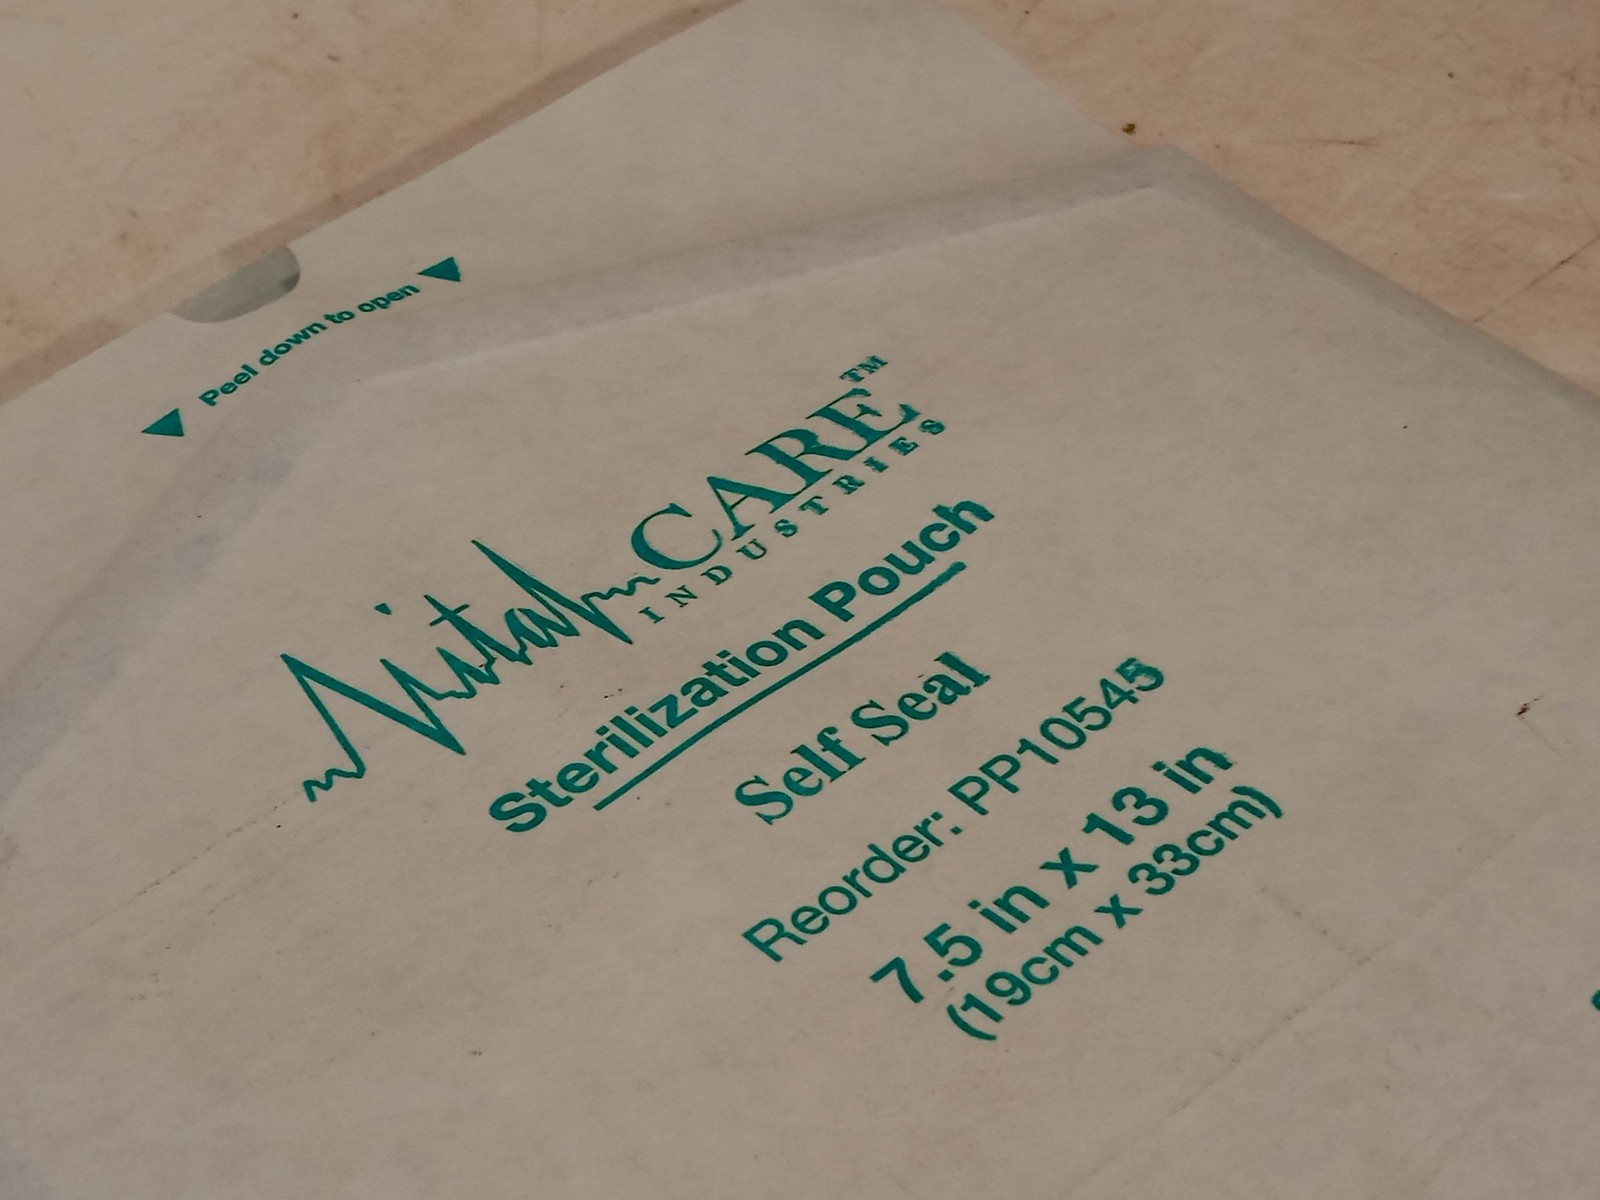 Peel down to open
VitalCARE™
INDUSTRIES
Sterilization Pouch
Self Seal
Reorder: PP10545
7.5 in x 13 in
(19cm x 33cm)